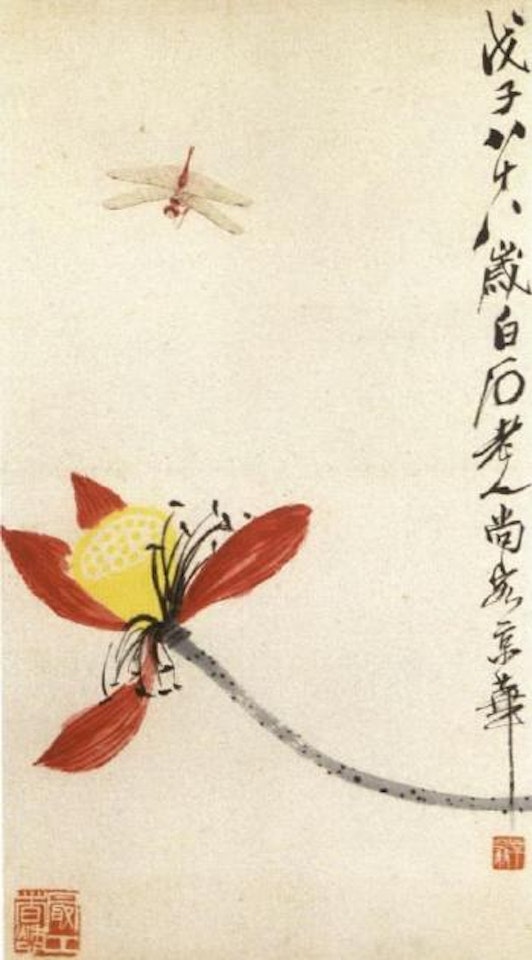 戊子八十八歲白石老人尚客京華